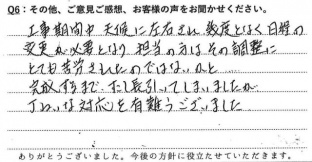 Q6：その他、ご意見ご感想、お客様の声をお聞かせください。
工事期間中 天候に左右され 数度となく日程の
変更が必要となり 担当の方は その調整に
とても苦労されたのではないかと
完成するまで 少し長引いてしまいましたが
丁寧な対応を有難うございました
ありがとうございました。今後の方針に役立たせていただきます。